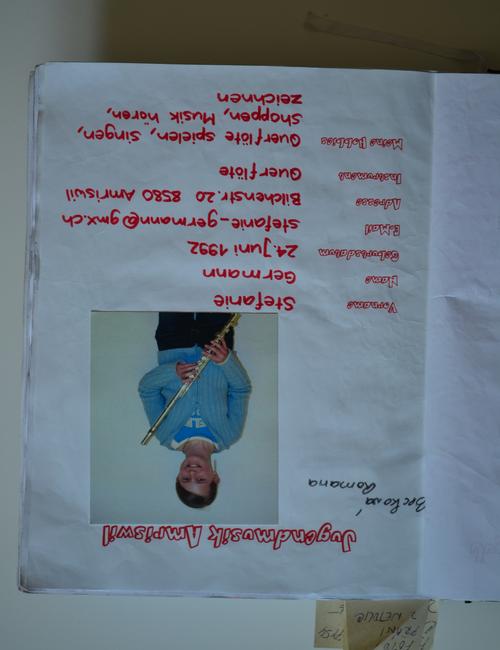 Jugendmusik Amriswil
Becková
Romana
Vorname Stefanie
Name Germann
Geburtsdatum 24. Juni 1992
E-Mail stefanie-germann@gmx.ch
Adresse Bilchenstr. 20 8580 Amriswil
Instrument Querflöte
Meine Hobbies Querflöte spielen, Singen,
Shoppen, Musik hören,
zeichnen